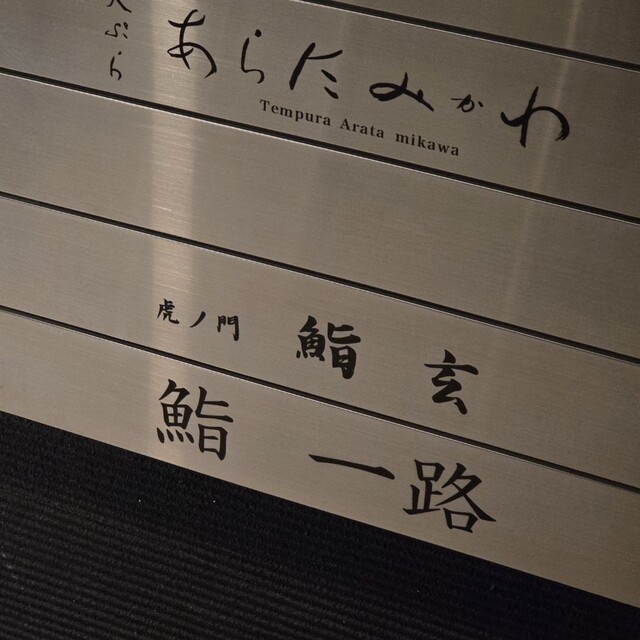 天ぷら あらたみかわ
Tempura Arata mikawa
虎ノ門 鮨 玄
鮨 一路